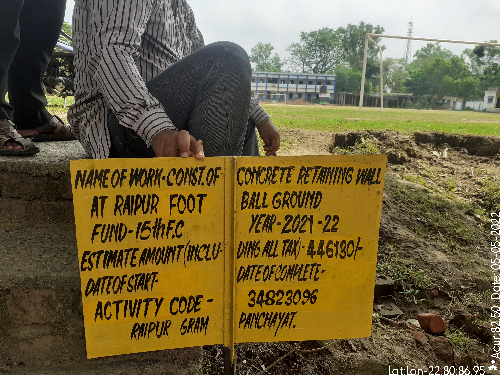 NAME OF WORK-CONST.OF CONCRETE RETAINING WALL
AT RAIPUR FOOT BALL GROUND
FUND-15th F.C YEAR-2021-22
ESTIMATE AMOUNT (INCLU- DING ALL TAX)- 446130/-
DATE OF START- DATE OF COMPLETE-
ACTIVITY CODE - 34823096
RAIPUR GRAM PANCHAYAT.